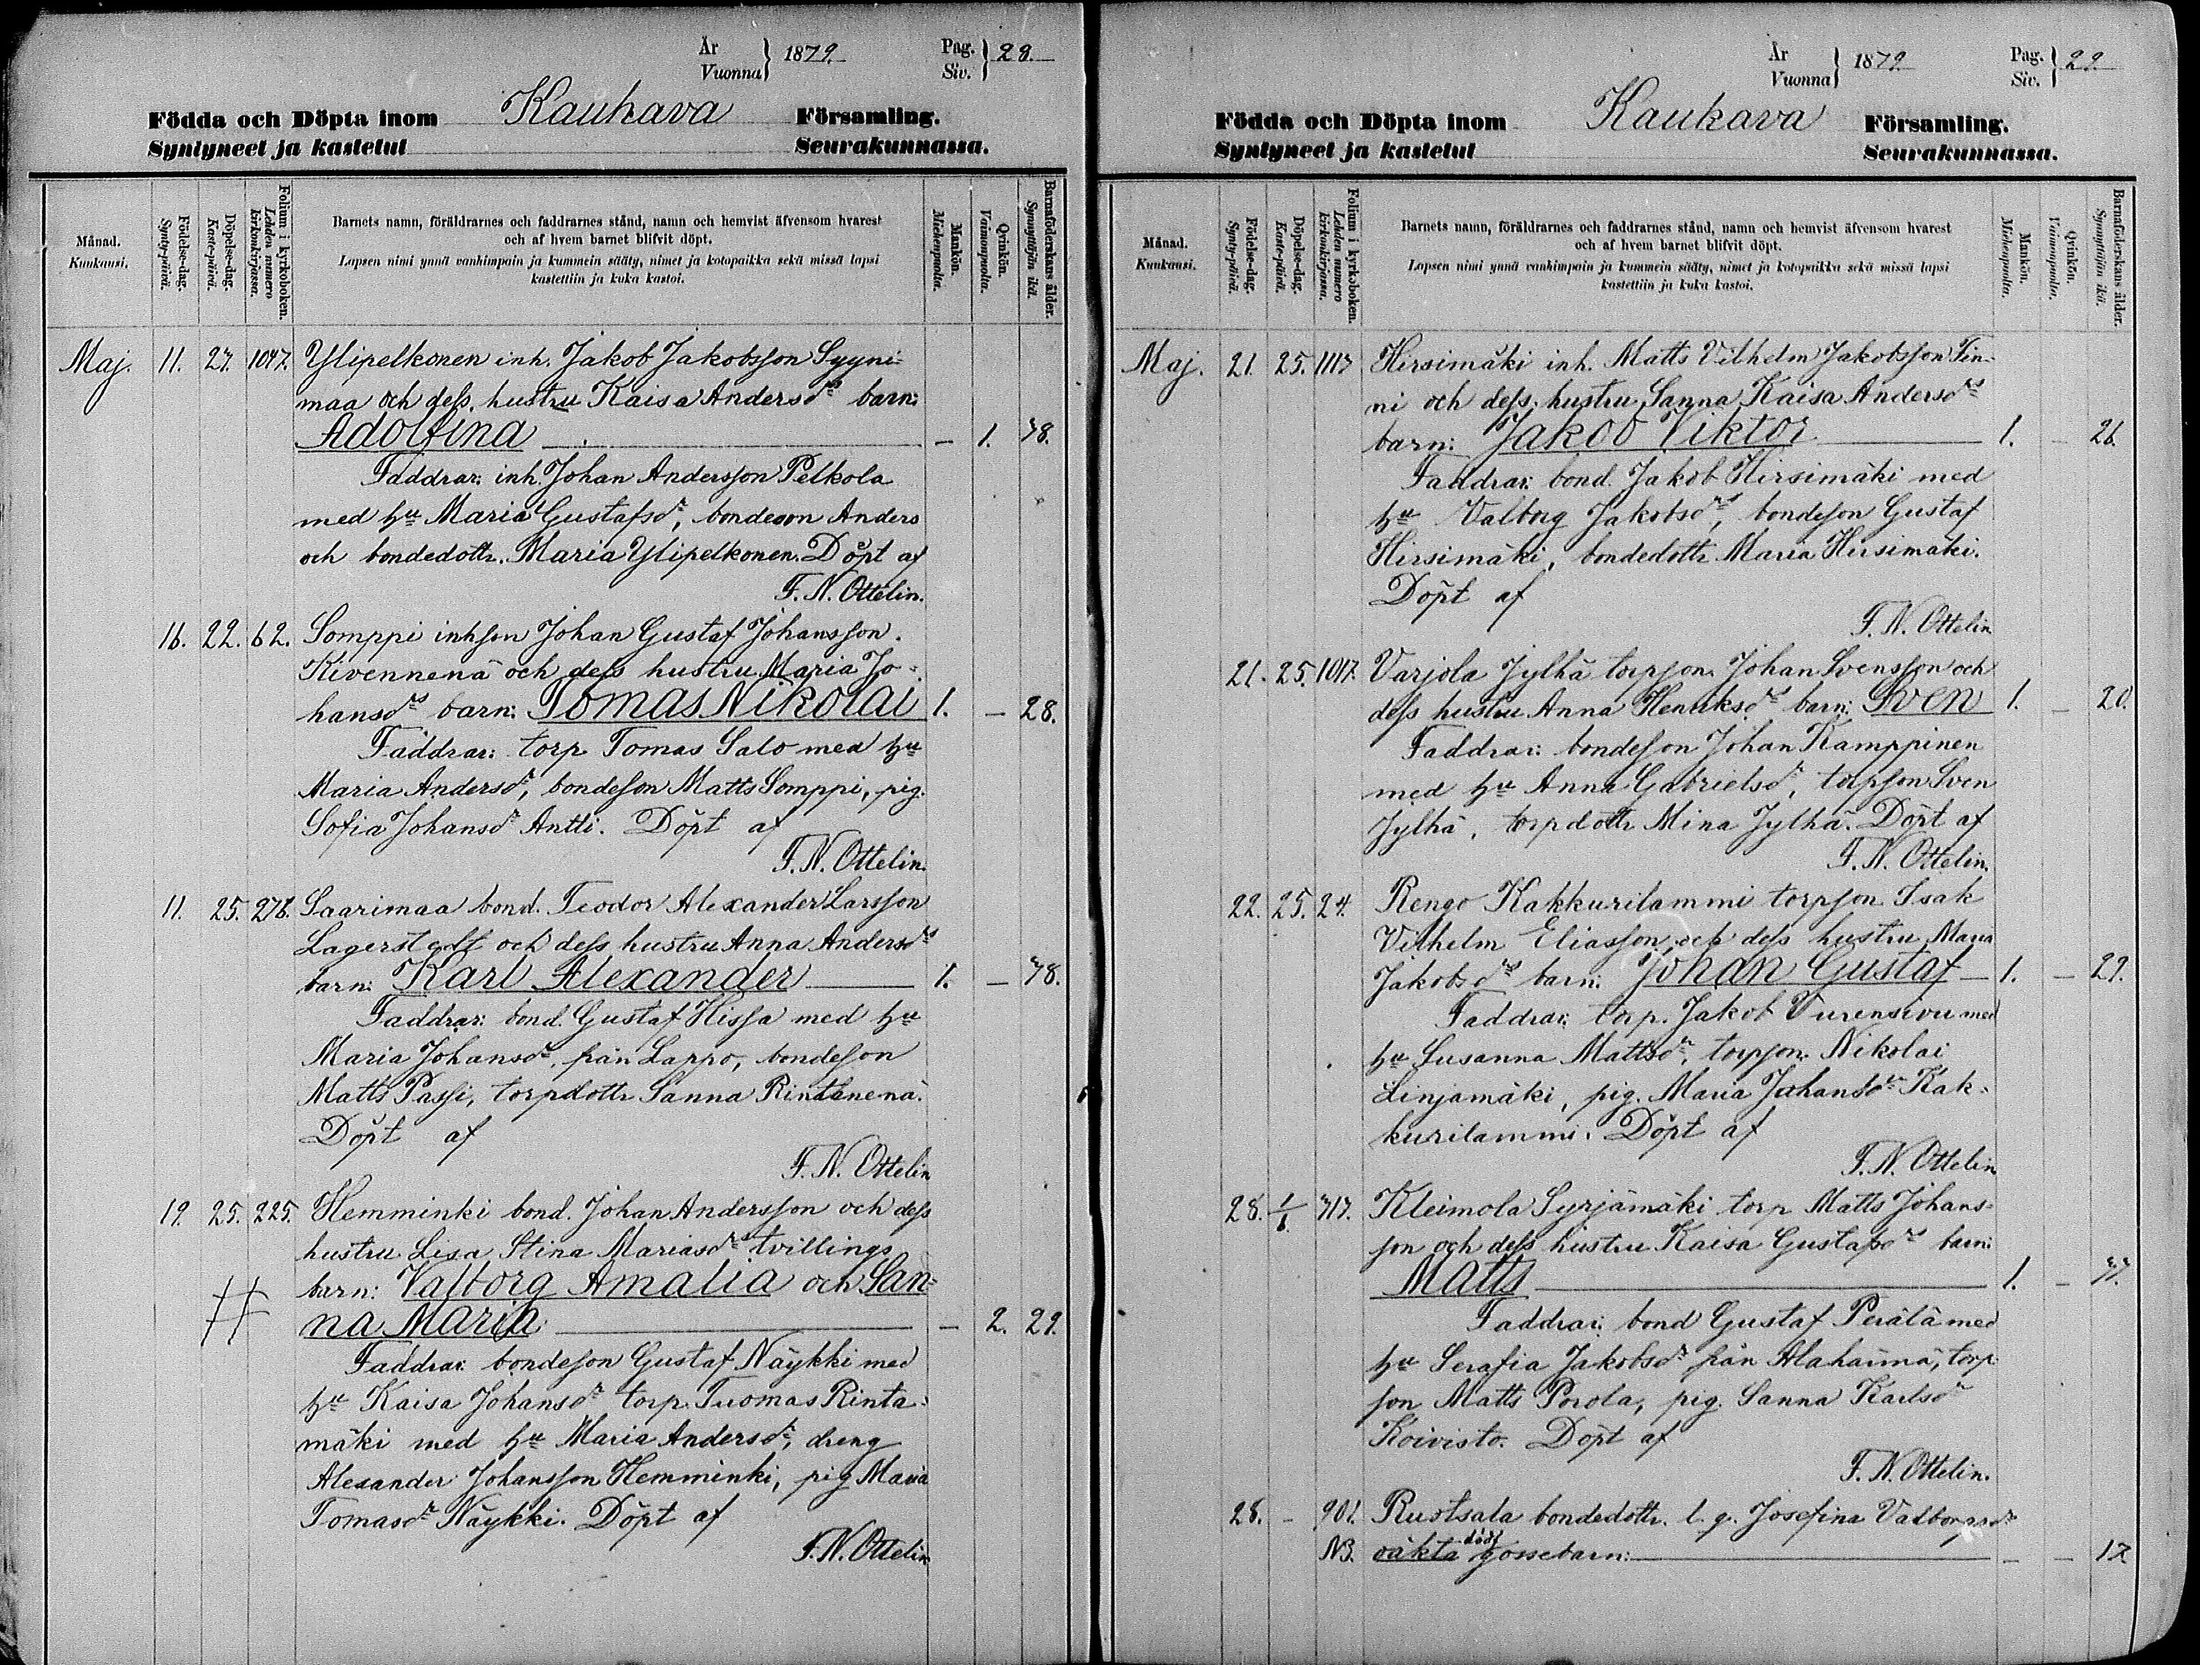 År
Vuonna } 1879.
Pag.
Siv. } 28.
Födda och Döpta inom Kauhava Församling.
Syntyneet ja kastetut Seurakunnassa.
Månad.
Kuukausi.
Födelse-dag.
Synty-päivä.
Döpelse-dag.
Kaste-päivä.
Folium i kyrkoboken.
Lehden numero
kirkonkirjassa.
Barnets namn, föräldrarnes och faddrarnes stånd, namn och hemvist äfvensom hvarest
och af hvem barnet blifvit döpt.
Lapsen nimi ynnä vanhimpain ja kummein sääty, nimet ja kotopaikka sekä missä lapsi
kastettiin ja kuka kastoi.
Mankön.
Miehenpuolta.
Qvinkön.
Vaimonpuolta.
Barnaföderskans ålder.
Synnyttäjän ikä.
Maj. 11. 27. 1047. Ylipelkonen inh. Jakob Jakobsson Syyni-
maa och dess hustru Kaisa Andersdrs barn:
Adolfina — 1. 38.
Faddrar: inh. Johan Andersson Pelkola
med hu Maria Gustafsdr, bondeson Anders
och bondedottr. Maria Ylipelkonen. Döpt af
F. N. Ottelin.
16. 22. 62. Somppi inhson Johan Gustaf Johansson
Kivennenä och dess hustru Maria Jo-
hansdrs barn: Tomas Nikolai 1. — 28.
Faddrar: torp. Tomas Salo med hu
Maria Andersdr, bondeson Matts Somppi, pig.
Sofia Johansdr Antti. Döpt af
F. N. Ottelin.
11. 25. 278. Saarimaa bond. Teodor Alexander Larsson
Lagerstedt och dess hustru Anna Andersdrs
barn: Karl Alexander 1. — 38.
Faddrar: bond. Gustaf Hissa med hu
Maria Johansdr från Lappo, bondeson
Matts Passi, torpdottr Sanna Rintanenä.
Döpt af
F. N. Ottelin
19. 25. 225. Hemminki bond. Johan Andersson och dess
hustru Lisa Stina Mariasdrs tvillings
barn: Valborg Amalia och San-
na Maria — 2. 29.
Faddrar: bondeson Gustaf Näykki med
hu Kaisa Johansdr torp. Tuomas Rinta-
mäki med hu Maria Andersdr, dreng
Alexander Johansson Hemminki, pig Maria
Tomasdr Näykki. Döpt af
F. N. Ottelin
År
Vuonna } 1879.
Pag.
Siv. } 29.
Födda och Döpta inom Kauhava Församling.
Syntyneet ja kastetut Seurakunnassa.
Månad.
Kuukausi.
Födelse-dag.
Synty-päivä.
Döpelse-dag.
Kaste-päivä.
Folium i kyrkoboken.
Lehden numero
kirkonkirjassa.
Barnets namn, föräldrarnes och faddrarnes stånd, namn och hemvist äfvensom hvarest
och af hvem barnet blifvit döpt.
Lapsen nimi ynnä vanhimpain ja kummein sääty, nimet ja kotopaikka sekä missä lapsi
kastettiin ja kuka kastoi.
Mankön.
Miehenpuolta.
Qvinkön.
Vaimonpuolta.
Barnaföderskans ålder.
Synnyttäjän ikä.
Maj. 21. 25. 1117 Hirsimäki inh. Matts Vilhelm Jakobsson Tin-
ni och dess hustru Sanna Kaisa Andersdrs
barn: Jakob Viktor 1. — 26.
Faddrar: bond. Jakob Hirsimäki med
hu Valborg Jakobsdr, bondeson Gustaf
Hirsimäki, bondedottr Maria Hirsimäki.
Döpt af
F. N. Ottelin
21. 25. 1017. Varjola Jylhä torpson Johan Svensson och
dess hustru Anna Henriksdrs barn: Sven 1. — 20.
Faddrar: bondeson Johan Kamppinen
med hu Anna Gabrielsdr, torpson Sven
Jylhä, torpdottr Mina Jylhä. Döpt af
F. N. Ottelin.
22. 25. 24. Rengo Kakkurilammi torpson Isak
Vilhelm Eliasson och dess hustru Maria
Jakobsdrs barn: Johan Gustaf 1. — 29.
Faddrar: torp. Jakob Vurensivu med
hu Susanna Mattsdr, torpson Nikolai
Linjamäki, pig. Maria Johansdr Kak-
kurilammi. Döpt af
F. N. Ottelin
28. 1/6. 717. Kleimola Syrjämäki torp Matts Johans-
son och dess hustru Kaisa Gustafsdrs barn:
Matts 1. —
Faddrar: bond Gustaf Perälä med
hu Serafia Jakobsdr från Alahärmä, torp
son Matts Porola, pig. Sanna Karlsdr
Koivisto. Döpt af
F. N. Ottelin.
28. — 901. Ruotsala bondedottr. l. g. Josefina Valborgsdrs
NB. oäkta dödf gossebarn: — — 17